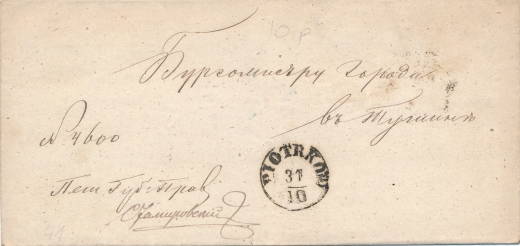 10 p
Бургомистру города
въ Тушинѣ
№ 4600
PIOTRKOW
31
10
Пет. Губ. Прав